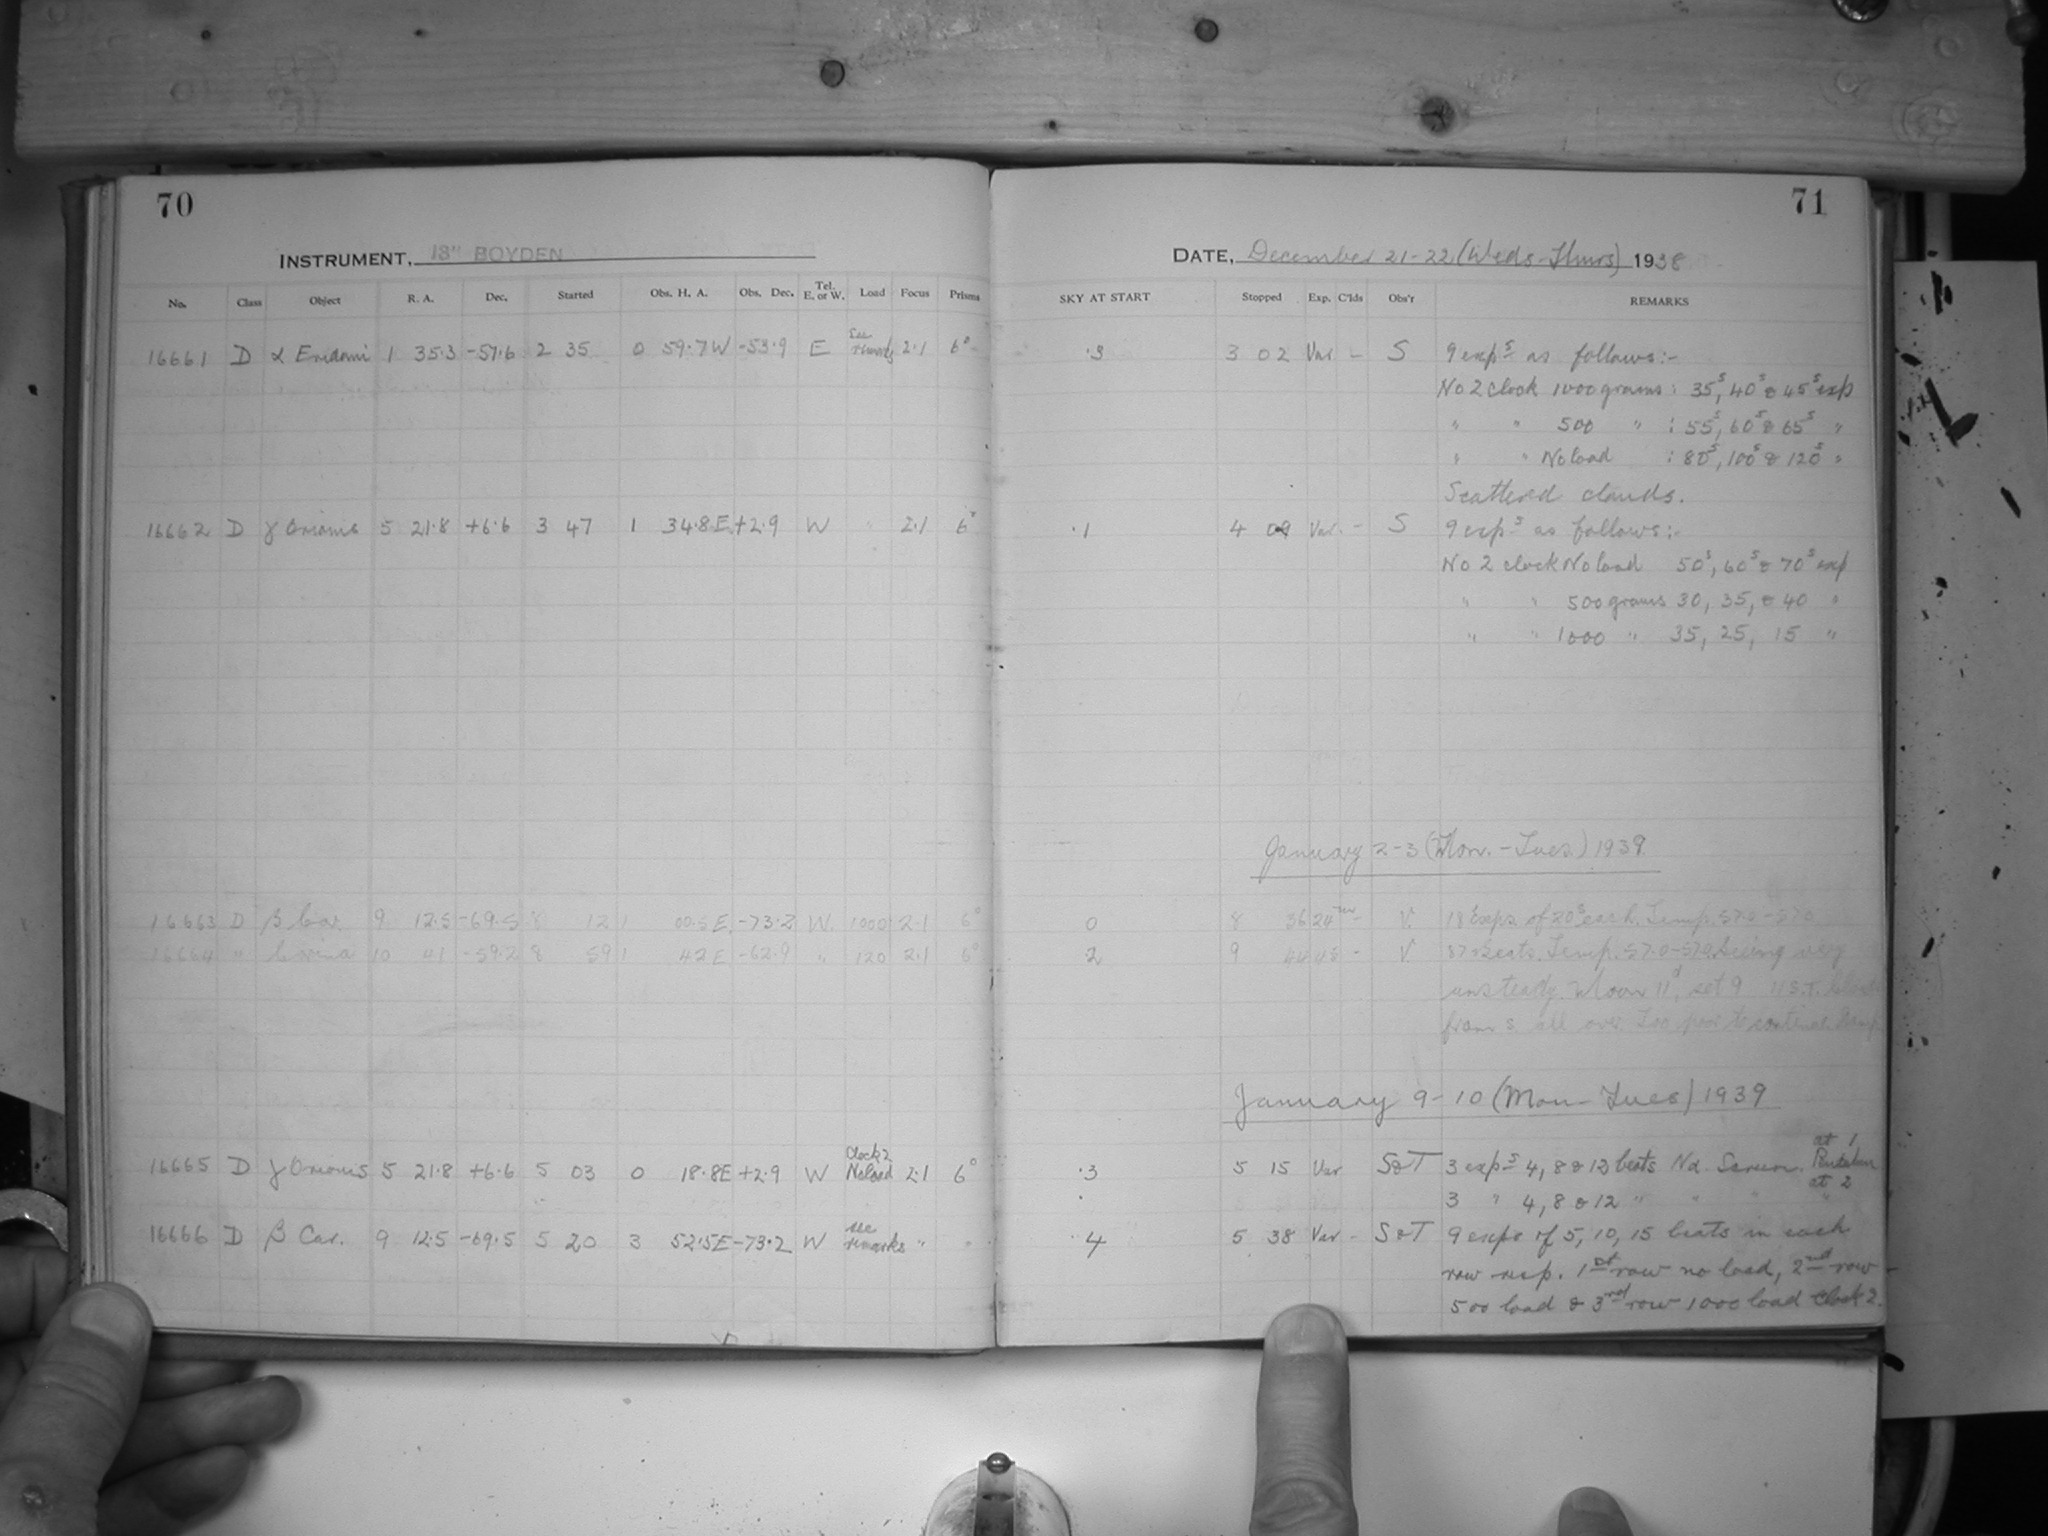 70
INSTRUMENT, 13" BOYDEN
No. Class Object R. A. Dec. Started Obs. H. A. Obs. Dec. Tel. E. or W. Load Focus Prisms
16661 D α Eridani 1 35.3 -57.6 2 35 0 59.7W -53.9 E See remarks 2.1 6°
16662 D γ Orionis 5 21.8 +6.6 3 47 1 34.8E +2.9 W " 2.1 6°
16663 D β Car. 9 12.5 -69.5 8 12 1 00.5E -73.2 W. 1000 2.1 6°
16664 " Carina 10 41 -59.2 8 59 1 42E -62.9 " 120 2.1 6°
16665 D γ Orionis 5 21.8 +6.6 5 03 0 18.8E +2.9 W Clock 2 No load 2.1 6°
16666 D β Car. 9 12.5 -69.5 5 20 3 52.5E -73.2 W see remarks " "
71
DATE, December 21-22 (Weds-Thurs) 1938
SKY AT START Stopped Exp. C'lds Obs'r REMARKS
.3 3 02 Var - S 9 exps as follows:-
No 2 clock 1000 grams : 35s, 40s & 45s exp
" " 500 " : 55s, 60s & 65s "
" " No load : 80s, 100s & 120s "
Scattered clouds.
.1 4 09 Var. - S 9 exps as follows:-
No 2 clock No load 50s, 60s & 70s exp
" " 500 grams 30, 35, & 40 "
" " 1000 " 35, 25, 15 "
January 2-3 (Mon.-Tues.) 1939
0 8 36 24m - V. 18 Exps of 20s each. Temp. 57.0-57.0
2 9 44 45 - V Temp. 57.0-57.0. Seeing very
unsteady. Moon 11d, set 9 11 S.T.
all over Too poor to
January 9-10 (Mon-Tues) 1939
.3 5 15 Var S&T 3 exps 4, 8 & 12 beats Nd. Screen. at 1
3 " 4, 8 & 12 " " " at 2 "
.4 5 38 Var - S&T 9 exps of 5, 10, 15 beats in each
row resp. 1st row no load, 2nd row -
500 load & 3rd row 1000 load Clock 2.